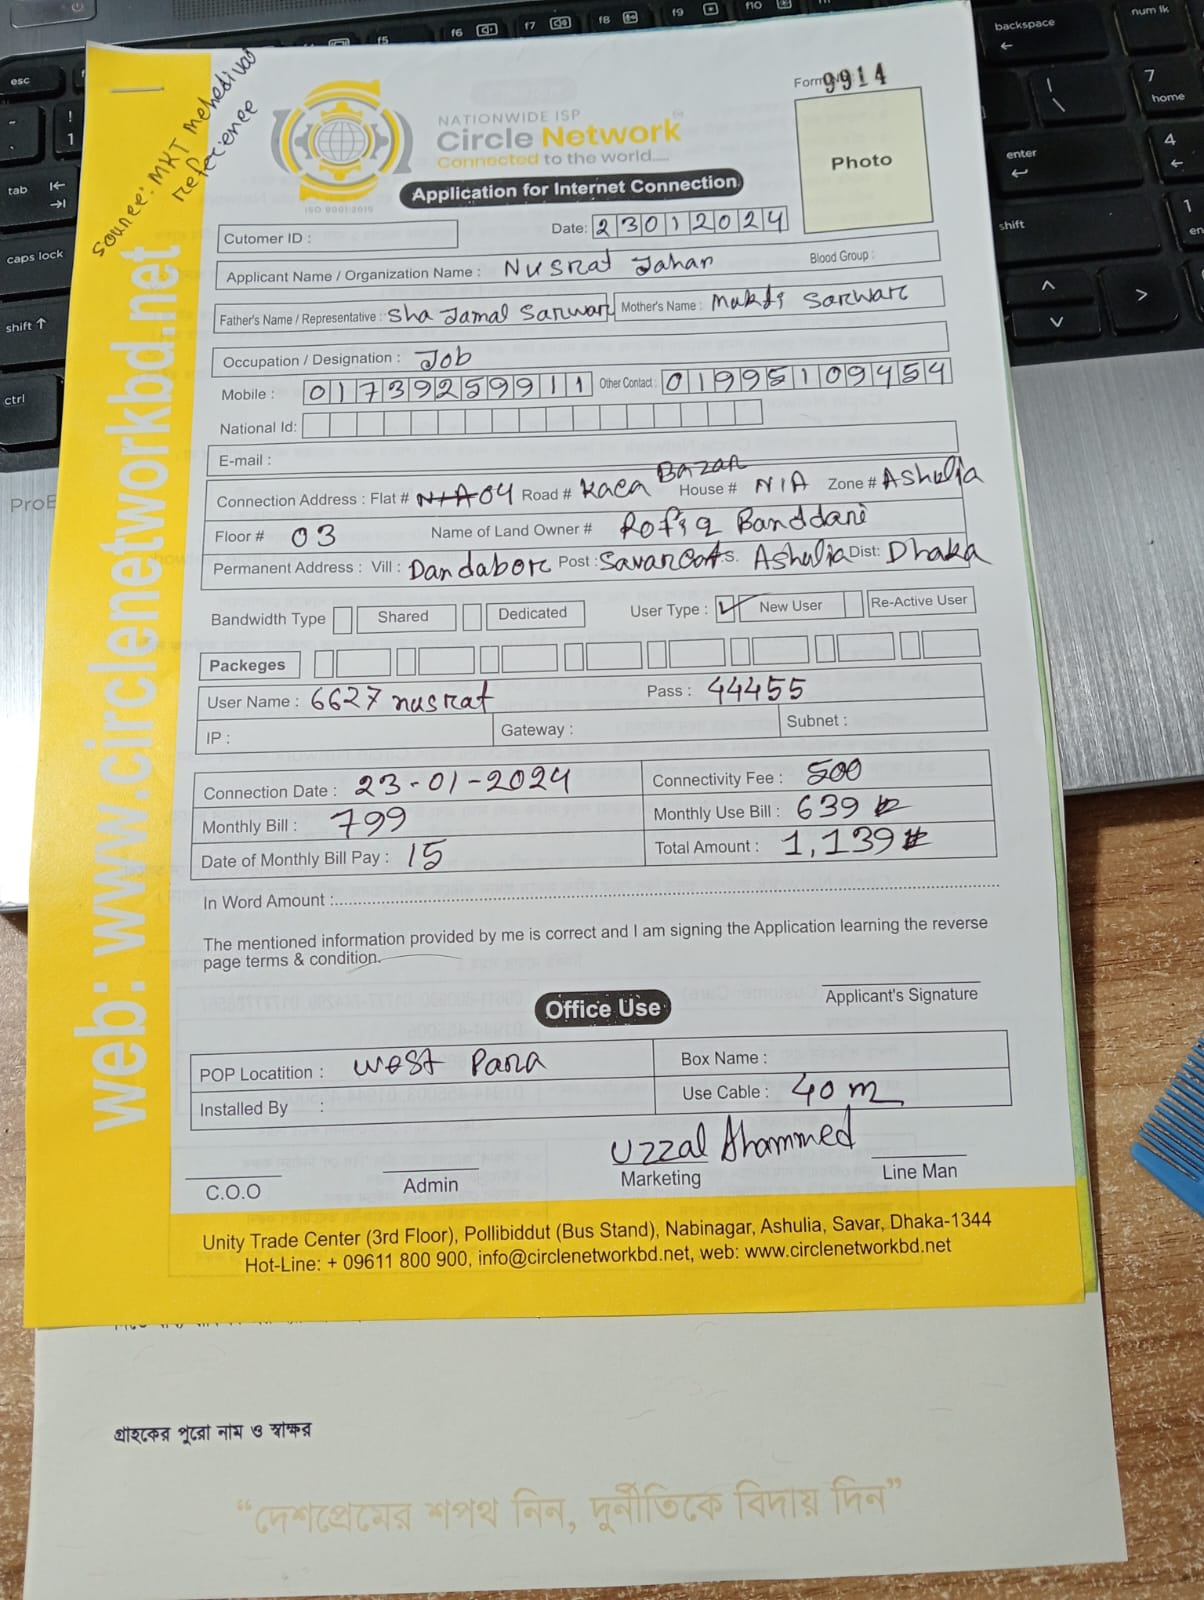 Source: MKT Mehedi vai
reference
Form 9914
NATIONWIDE ISP
Circle Network
Connected to the world....
ISO 9001:2015
Application for Internet Connection
Photo
Cutomer ID :
Date: 23012024
Applicant Name / Organization Name : Nusrat Jahan Blood Group :
Father's Name / Representative : Sha Jamal Sarwar Mother's Name : Mukti Sarwar
Occupation / Designation : Job
Mobile : 01739259911 Other Contact : 01995109454
National Id:
E-mail :
Connection Address : Flat # N/A 04 Road # Kaca Bazar House # N/A Zone # Ashulia
Floor # 03 Name of Land Owner # Rofiq Banddani
Permanent Address : Vill : Dandabor Post : Savar Cant P.S. Ashulia Dist: Dhaka
Bandwidth Type Shared Dedicated User Type : ✓ New User Re-Active User
Packeges
User Name : 6627 nusrat Pass : 44455
IP : Gateway : Subnet :
Connection Date : 23-01-2024 Connectivity Fee : 500
Monthly Bill : 799 Monthly Use Bill : 639
Date of Monthly Bill Pay : 15 Total Amount : 1,139
In Word Amount :
The mentioned information provided by me is correct and I am signing the Application learning the reverse
page terms & condition.
Applicant's Signature
Office Use
POP Locatition : West Para Box Name :
Installed By : Use Cable : 40 m
Uzzal Ahammed
C.O.O Admin Marketing Line Man
Unity Trade Center (3rd Floor), Pollibiddut (Bus Stand), Nabinagar, Ashulia, Savar, Dhaka-1344
Hot-Line: + 09611 800 900, info@circlenetworkbd.net, web: www.circlenetworkbd.net
web: www.circlenetworkbd.net
গ্রাহকের পুরো নাম ও স্বাক্ষর
“দেশপ্রেমের শপথ নিন, দুর্নীতিকে বিদায় দিন”
esc
tab
caps lock
shift
ctrl
f5
f6
f7
f8
f9
f10
backspace
num lk
enter
shift
7
home
4
1
ProB